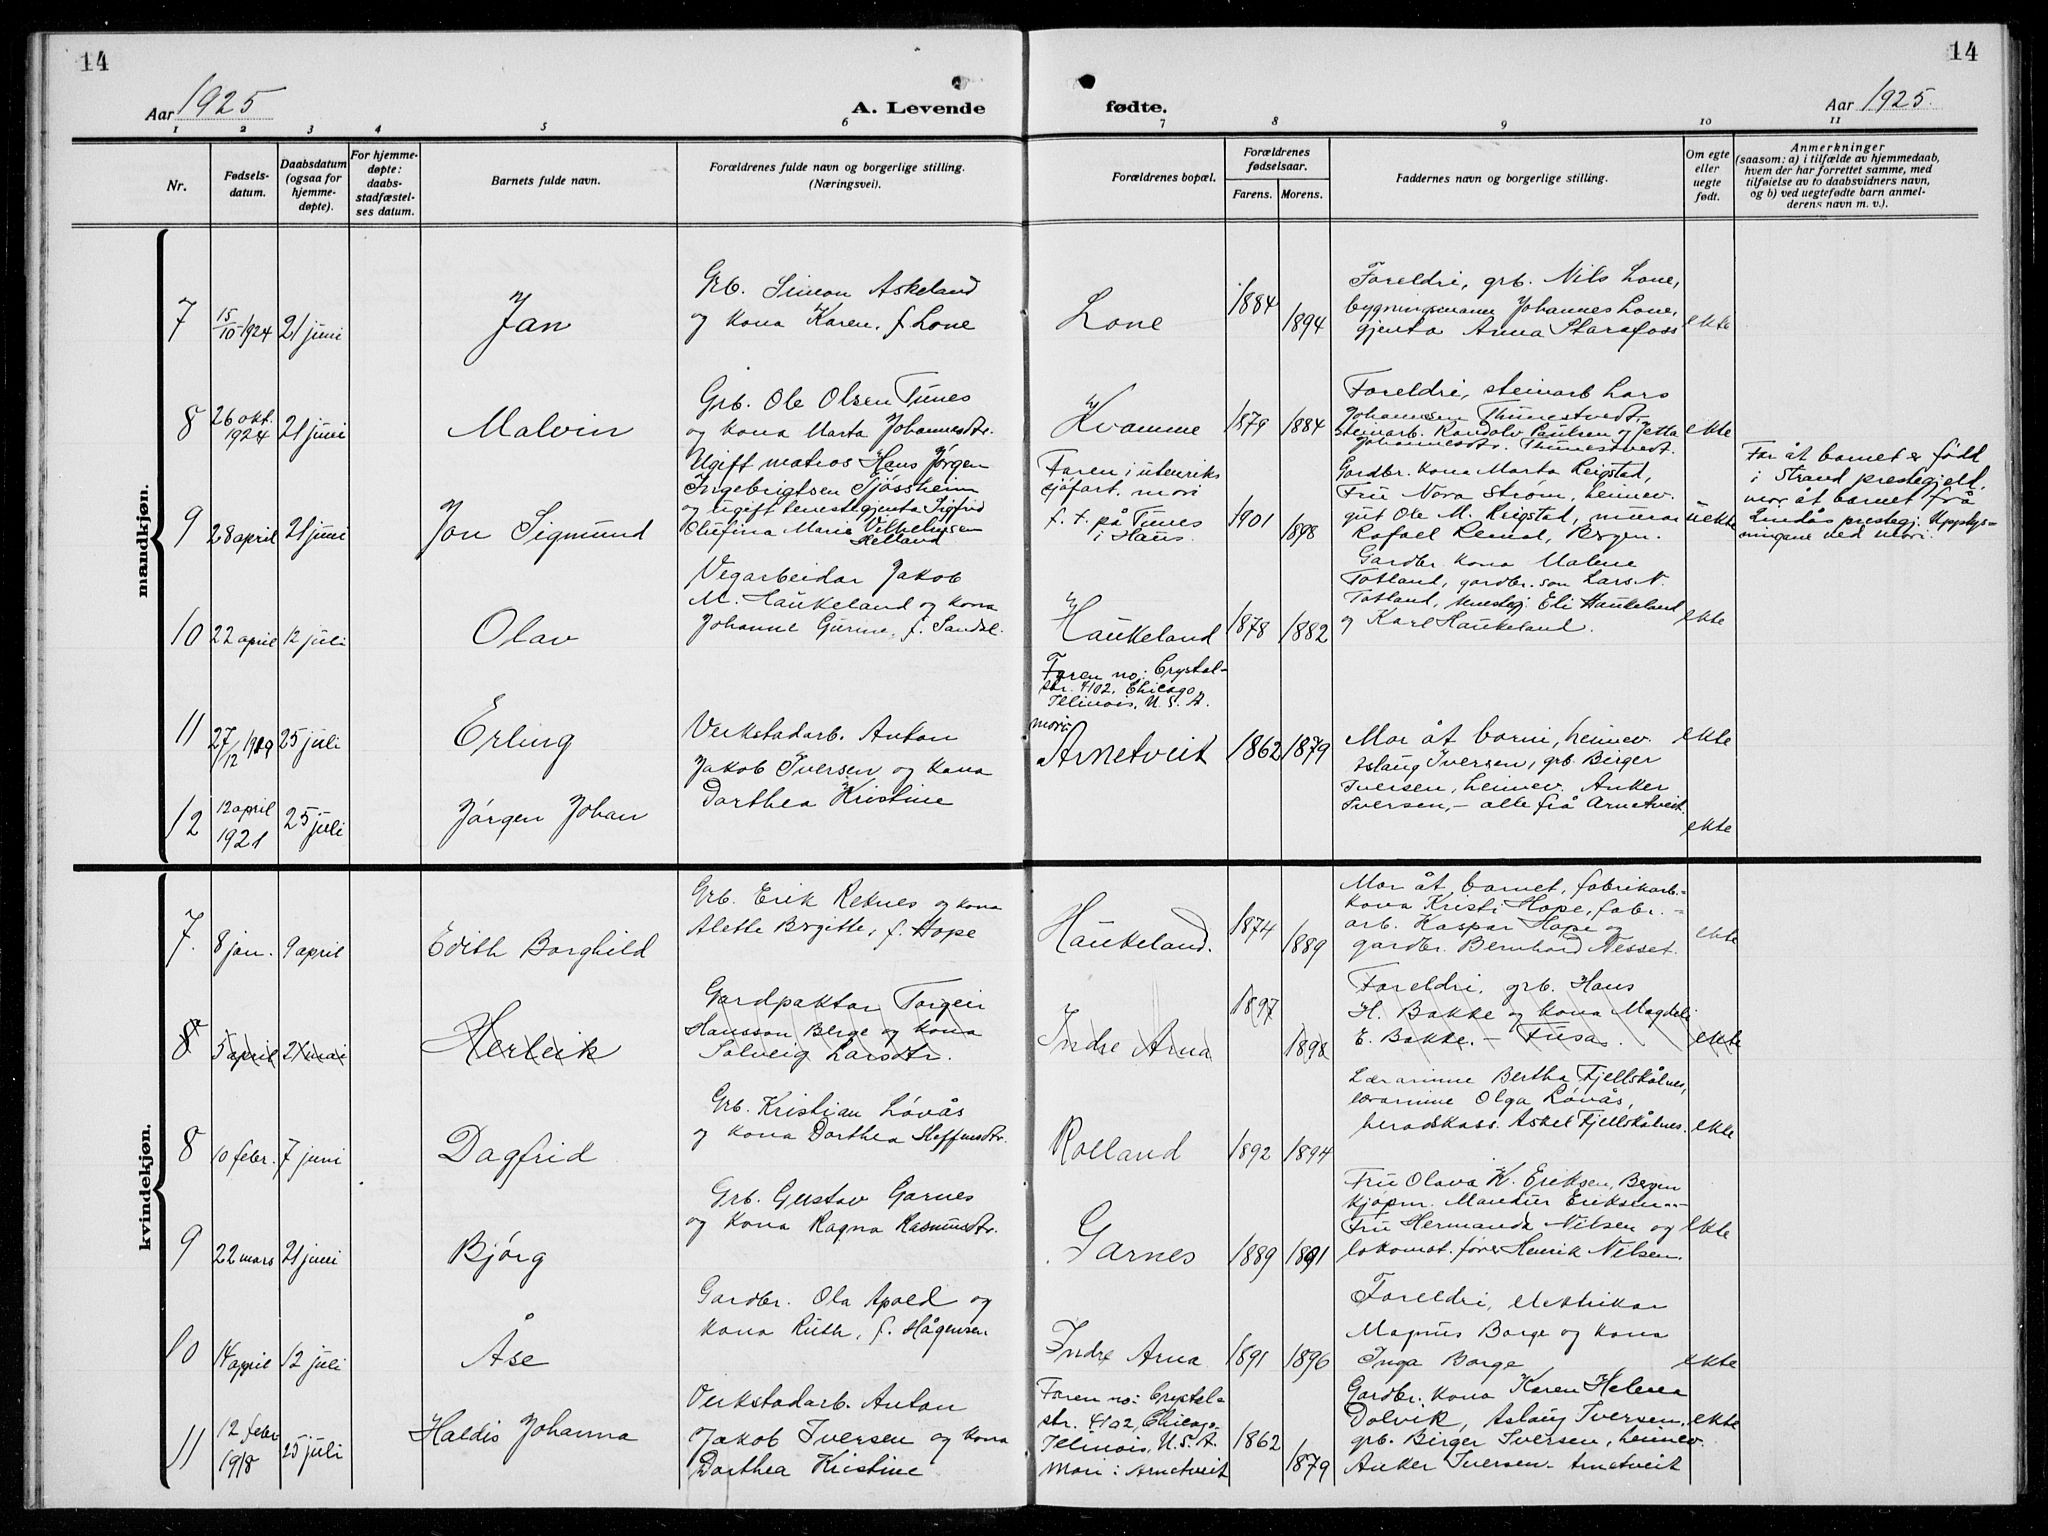 14
14
Aar 1925
A. Levende
fødte.
Aar 1925.
1 2 3 4 5 6 7 8 9 10 11
Nr.
Fødsels-
datum.
Daabsdatum
(ogsaa for
hjemme-
døpte).
For hjemme-
døpte:
daabs-
stadfæstel-
ses datum.
Barnets fulde navn.
Forældrenes fulde navn og borgerlige stilling.
(Næringsvei).
Forældrenes bopæl.
Forældrenes
fødselsaar.
Farens. Morens.
Faddernes navn og borgerlige stilling.
Om egte
eller
uegte
født.
Anmerkninger
(saasom: a) i tilfælde av hjemmedaab,
hvem der har forrettet samme, med
tilføielse av to daabsvidners navn,
og b) ved uegtefødte barn anmel-
derens navn m. v.).
mandkjøn.
7
15/10 1924
21 juni
Jan
Grb. Simon Askeland
og kona Karen, f. Lone
Lone
1884
1894
Foreldri, grb. Nils Lone,
bygningsmann Johannes Lone,
gjenta Anna Starefoss
ekte
8
26 okt.
1924
21 juni
Malvin
Grb. Ole Olsen Tunes
og kona Marta Johannesdtr.
Kvamme
1879
1884
Foreldri, steinarb Lars
Johannesen Thunestvedt,
steinarb. Randolv Paulsen og Jetta
Johannesdtr. Thunestvedt.
ekte
9
28 april
21 juni
Jon Sigmund
Ugift matros Hans Jørgen
Ingebrigtsen Sjøssheim
og ugift tenestegjenta Sigfrid
Olufina Marie Vilhelmsen
Helland
Faren i utenriks
sjøfart. mori
f. t. på Tunes
i Haus.
1901
1898
Gardbr. kona Marta Reigstad,
Fru Nora Strøm, heimev.
gut Ole M. Reigstad, murar
Rafael Reimal, Bergen.
uekte
Far åt barnet er född
i Strand prestegjeld.
mor åt barnet frå
Lindås prestegj. Upplys-
ningane ved mori.
10
22 april
12 juli
Olav
Vegarbeidar Jakob
M. Haukeland og kona
Johanne Gurine, f. Sandal.
Haukeland
1878
1882
Gardbr. kona Malene
Totland, gardbr. son Lars N.
Totland, tenestegj. Eli Haukeland
og Karl Haukeland.
ekte
11
27/12 1919
25 juli
Erling
Verkstadarb. Anton
Jakob Iversen og kona
Dorthea Kristine
Faren no: Crystal-
str. 4102, Chicago,
Illinois, U. S. A.
mori:
Arnetveit
1862
1879
Mor åt borni, heimev.
Aslaug Iversen, grb Birger
Iversen, heimev. Anker
Iversen, – alle frå Arnetveit.
ekte
12
12 april
1921
25 juli
Jørgen Johan
ekte
kvindekjøn.
7.
8 jan.
9 april
Edith Borghild
Grb. Erik Reknes og kona
Alette Birgitte, f. Hope
Haukeland.
1874
1889
Mor åt barnet, fabrikarb.-
kona Kristi Hope, fabr.-
arb. Kaspar Hope og
gardbr. Bernhard Nesset.
ekte
8
5 april
21 mai
Herleik
Gardpaktar Torgeir
Hansson Berge og kona
Solveig Larsdtr.
Indre Arna
1897
1898
Foreldri, grb. Hans
H. Bakke og kona Magdeli
E. Bakke. – Fusa.
ekte
8
10 febr.
7 juni
Dagfrid
Grb. Kristian Løvås
og kona Dorthea Steffensdtr.
Rolland
1892
1894
Lærarinne Bertha Fjellskålnes,
lærarinne Olga Løvås,
heradskass. Askel Fjellskålnes.
ekte
9
22 mars
21 juni
Bjørg
Grb. Gustav Garnes
og kona Ragna Rasmusdtr.
Garnes
1889
1891
Fru Olava K. Eriksen, Bergen
kjøpm. Mandius Eriksen –"–
Fru Hermanda Nilsen og
lokomot. fører Henrik Nilsen.
ekte
10
14 april
12 juli
Åse
Gardbr. Ola Apold og
kona Ruth, f. Hågensen
Indre Arna
1891
1896
Foreldri, elektrikar
Magnus Borge og kona
Inga Borge
ekte
11
12 febr
1918
25 juli
Haldis Johanna
Verkstadarb. Anton
Jakob Iversen og kona
Dorthea Kristine
Faren no: Crystal-
str. 4102, Chicago,
Illinois, U. S. A.
Mori: Arnetveit
1862
1879
Gardbr. kona Karen Helena
Dolvik, Aslaug Iversen,
grb. Birger Iversen, heimev.
Anker Iversen. Arnetveit
ekte